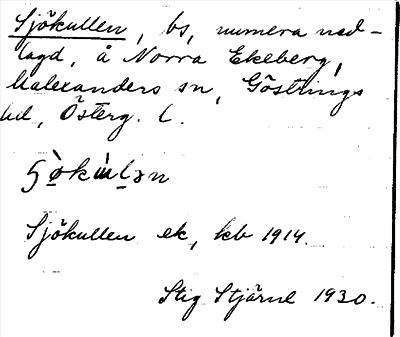 Sjökullen, bs, numera ned-
lagd, å Norra Ekeberg,
Malexanders sn, Göstrings
hd, Österg. l.
Sjökullen ek, kb 1914.
Stig Stjärne 1930.